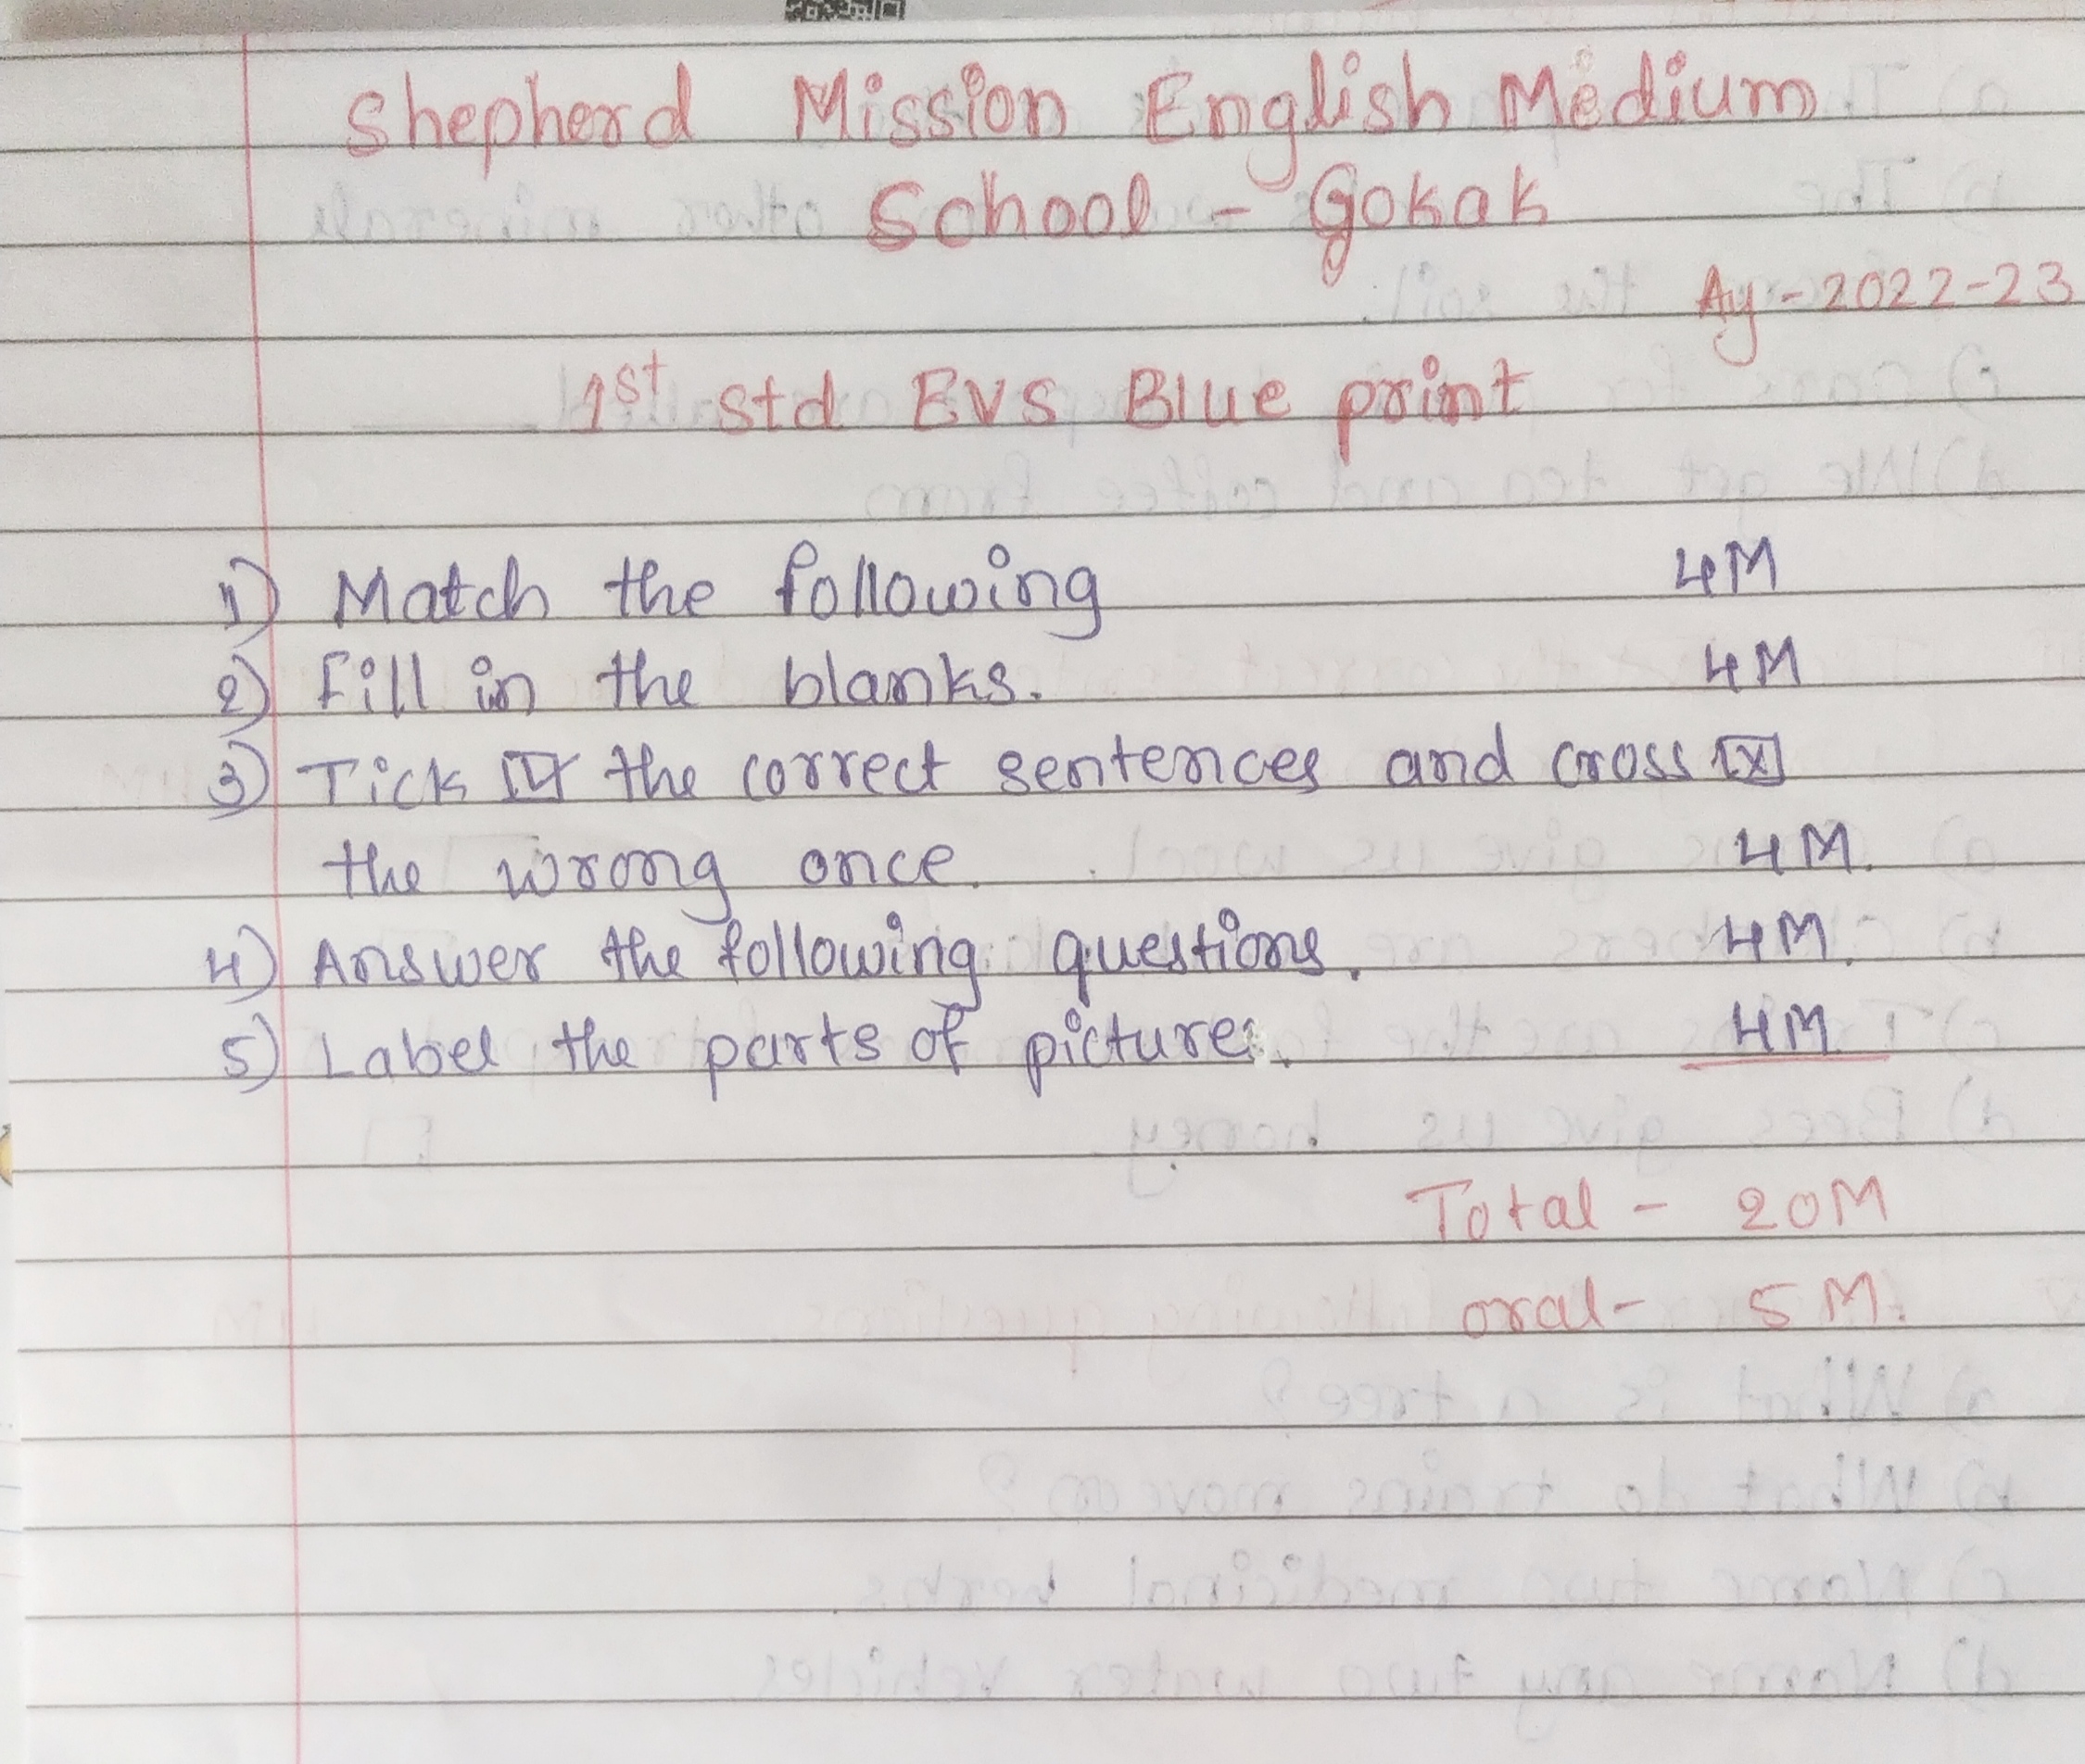 Shepherd Mission English Medium
School - Gokak
Ay - 2022-23
1st std EVS Blue print
1) Match the following 4M
2) Fill in the blanks. 4M
3) Tick [✓] the correct sentences and cross [x]
the wrong once. 4M.
4) Answer the following questions. 4M.
5) Label the parts of picture. 4M.
Total - 20M
oral - 5M.